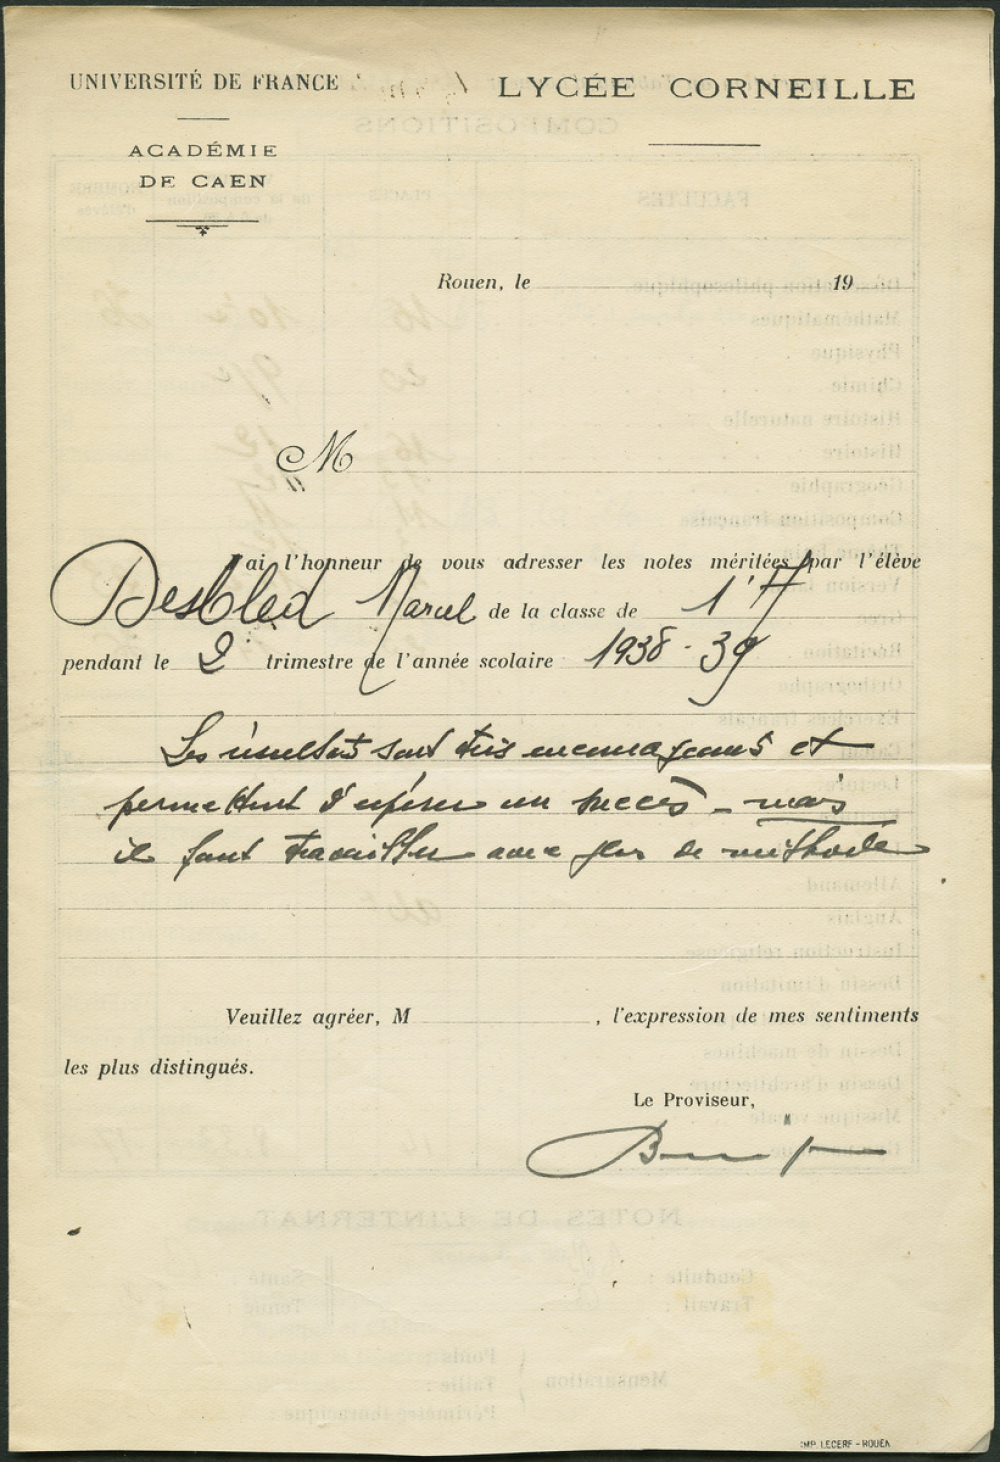 UNIVERSITÉ DE FRANCE
LYCÉE CORNEILLE
ACADÉMIE
DE CAEN
Rouen, le 19
M
J'ai l'honneur de vous adresser les notes méritées par l'élève
Desbled Marcel de la classe de 1e A
pendant le 2e trimestre de l'année scolaire 1938-39
Les résultats sont très encourageants et
permettent d'espérer un succès - mais
il faut travailler avec plus de méthode
Veuillez agréer, M , l'expression de mes sentiments
les plus distingués.
Le Proviseur,
IMP. LECERF - ROUEN